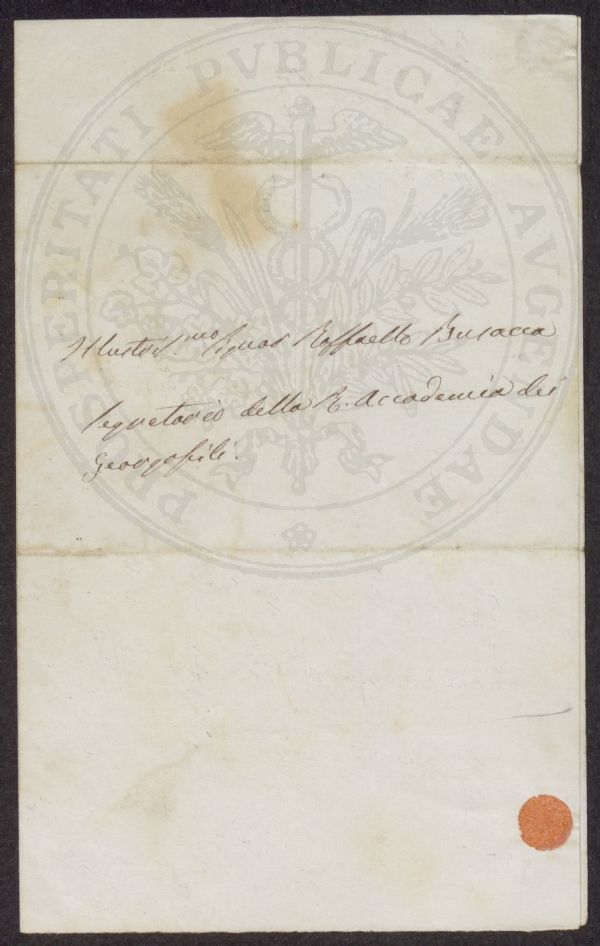 PROSPERITATI PVBLICAE AVGENDAE
Illustris.mo Signor Raffaello Busacca
Segretario della R. Accademia dei
Georgofili.